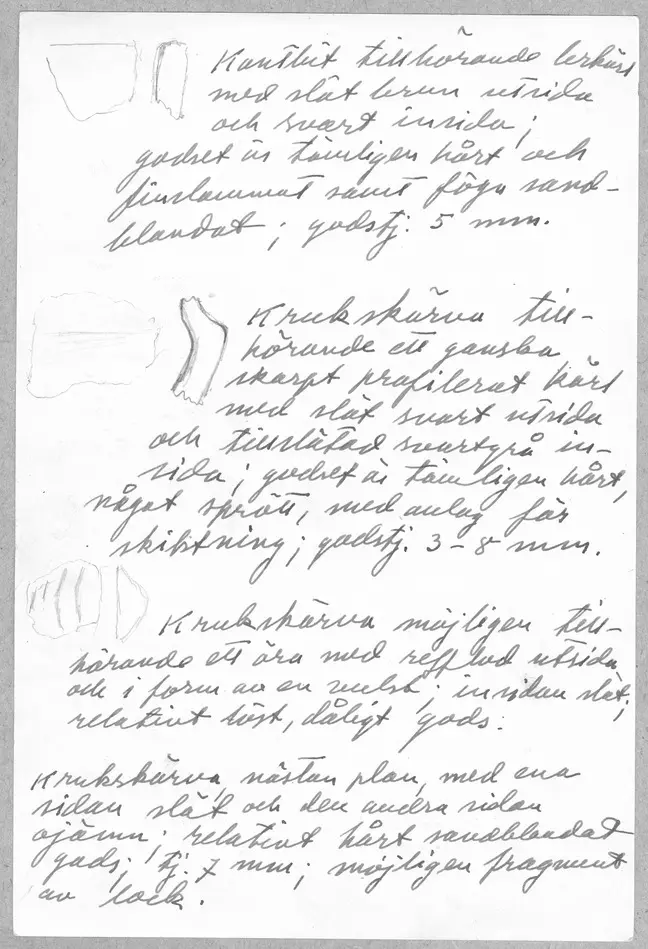 Kantbit tillhörande lerkärl
med slät brun utsida
och svart insida;
godset är tämligen hårt och
finslammat samt föga sand-
blandat; godstj. 5 mm.
Krukskärva till-
hörande ett ganska
skarpt profilerat kärl
med slät svart utsida
och tillslätad svartgrå in-
sida; godset är tämligen hårt,
något sprött, med anlag för
skiktning; godstj. 3-8 mm.
Krukskärva möjligen till-
hörande ett öra med refflad utsida
och i form av en vulst; insidan slät;
relativt löst, dåligt gods.
Krukskärva, nästan plan, med ena
sidan slät och den andra sidan
ojämn; relativt hårt sandblandat
gods; tj. 7 mm; möjligen fragment
av lock.